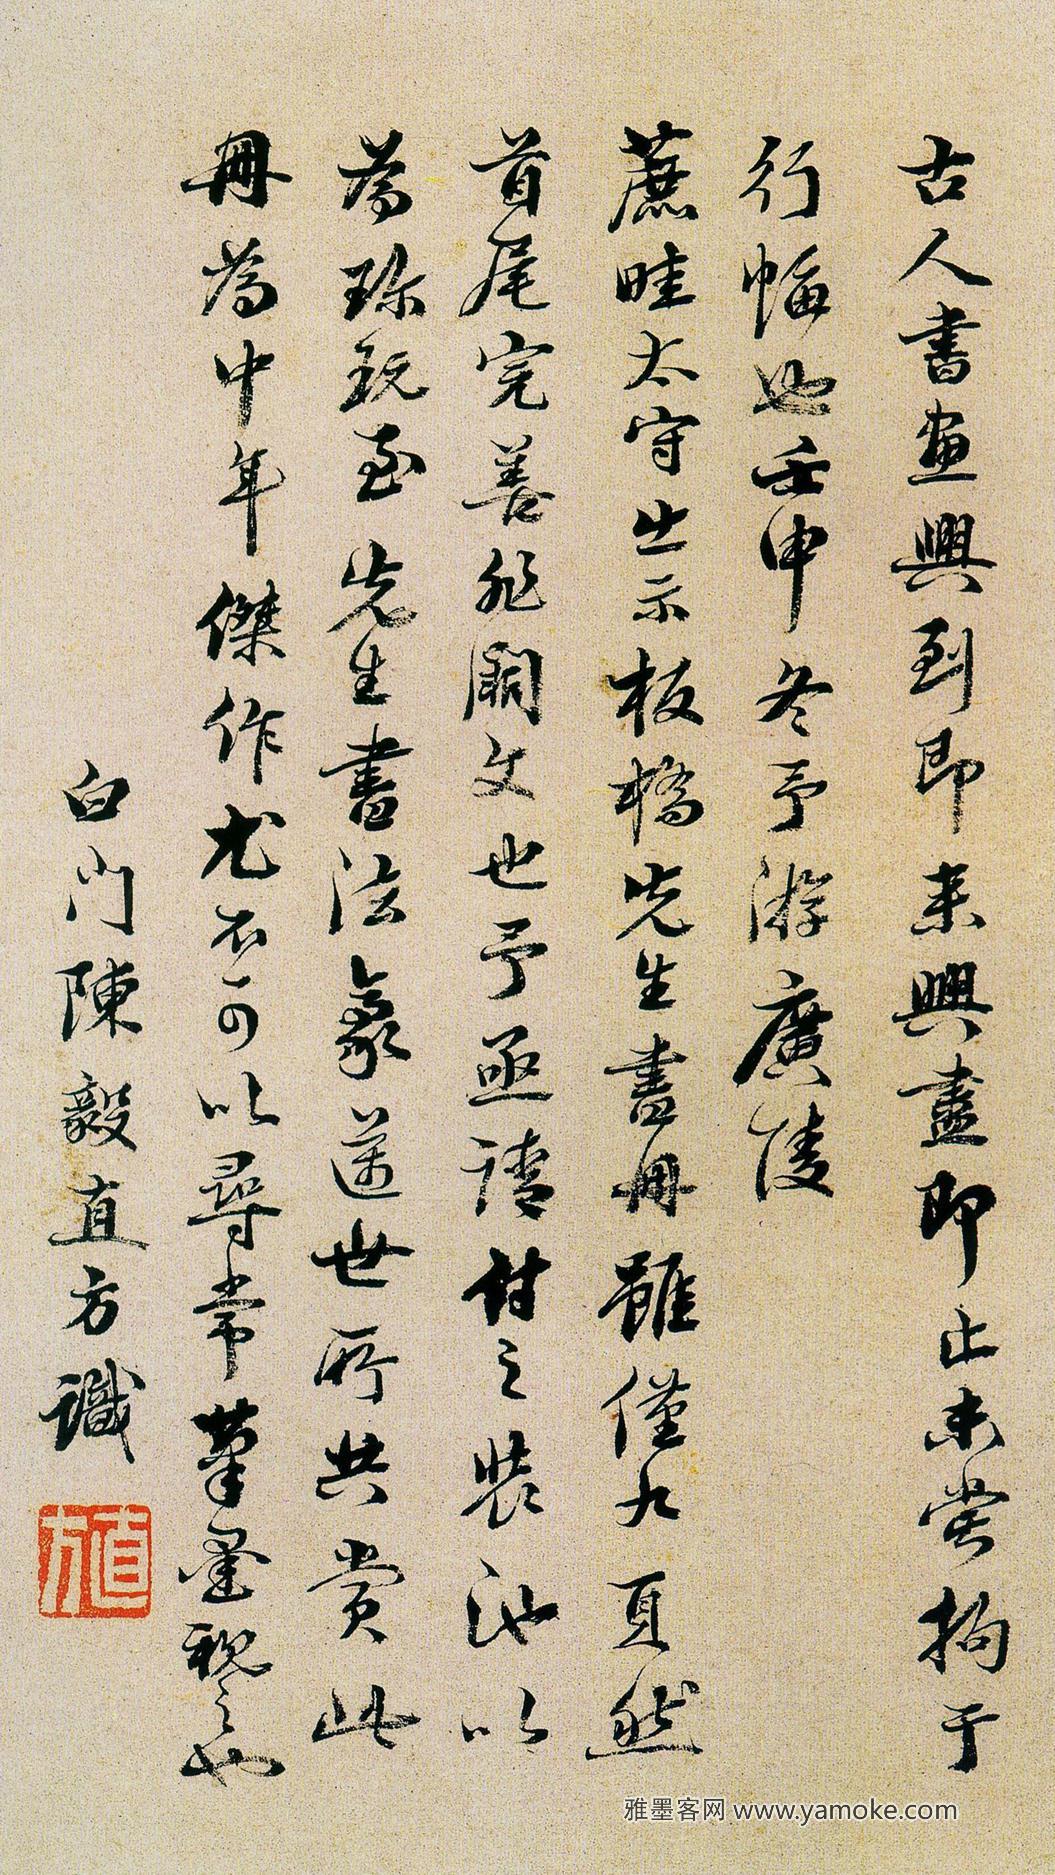 古人書畫興到即來興盡即止未嘗拘于
行幅也壬申冬予游廣陵
蔗畦太守出示板橋先生書冊雖僅九頁然
首尾完善非闕文也予亟請付之裝池以
為珎玩至先生書法豪邁世所共赏此
冊為中年傑作尤不可以尋常筆墨視之也
白門陳毅直方識
直方
雅墨客网 www.yamoke.com